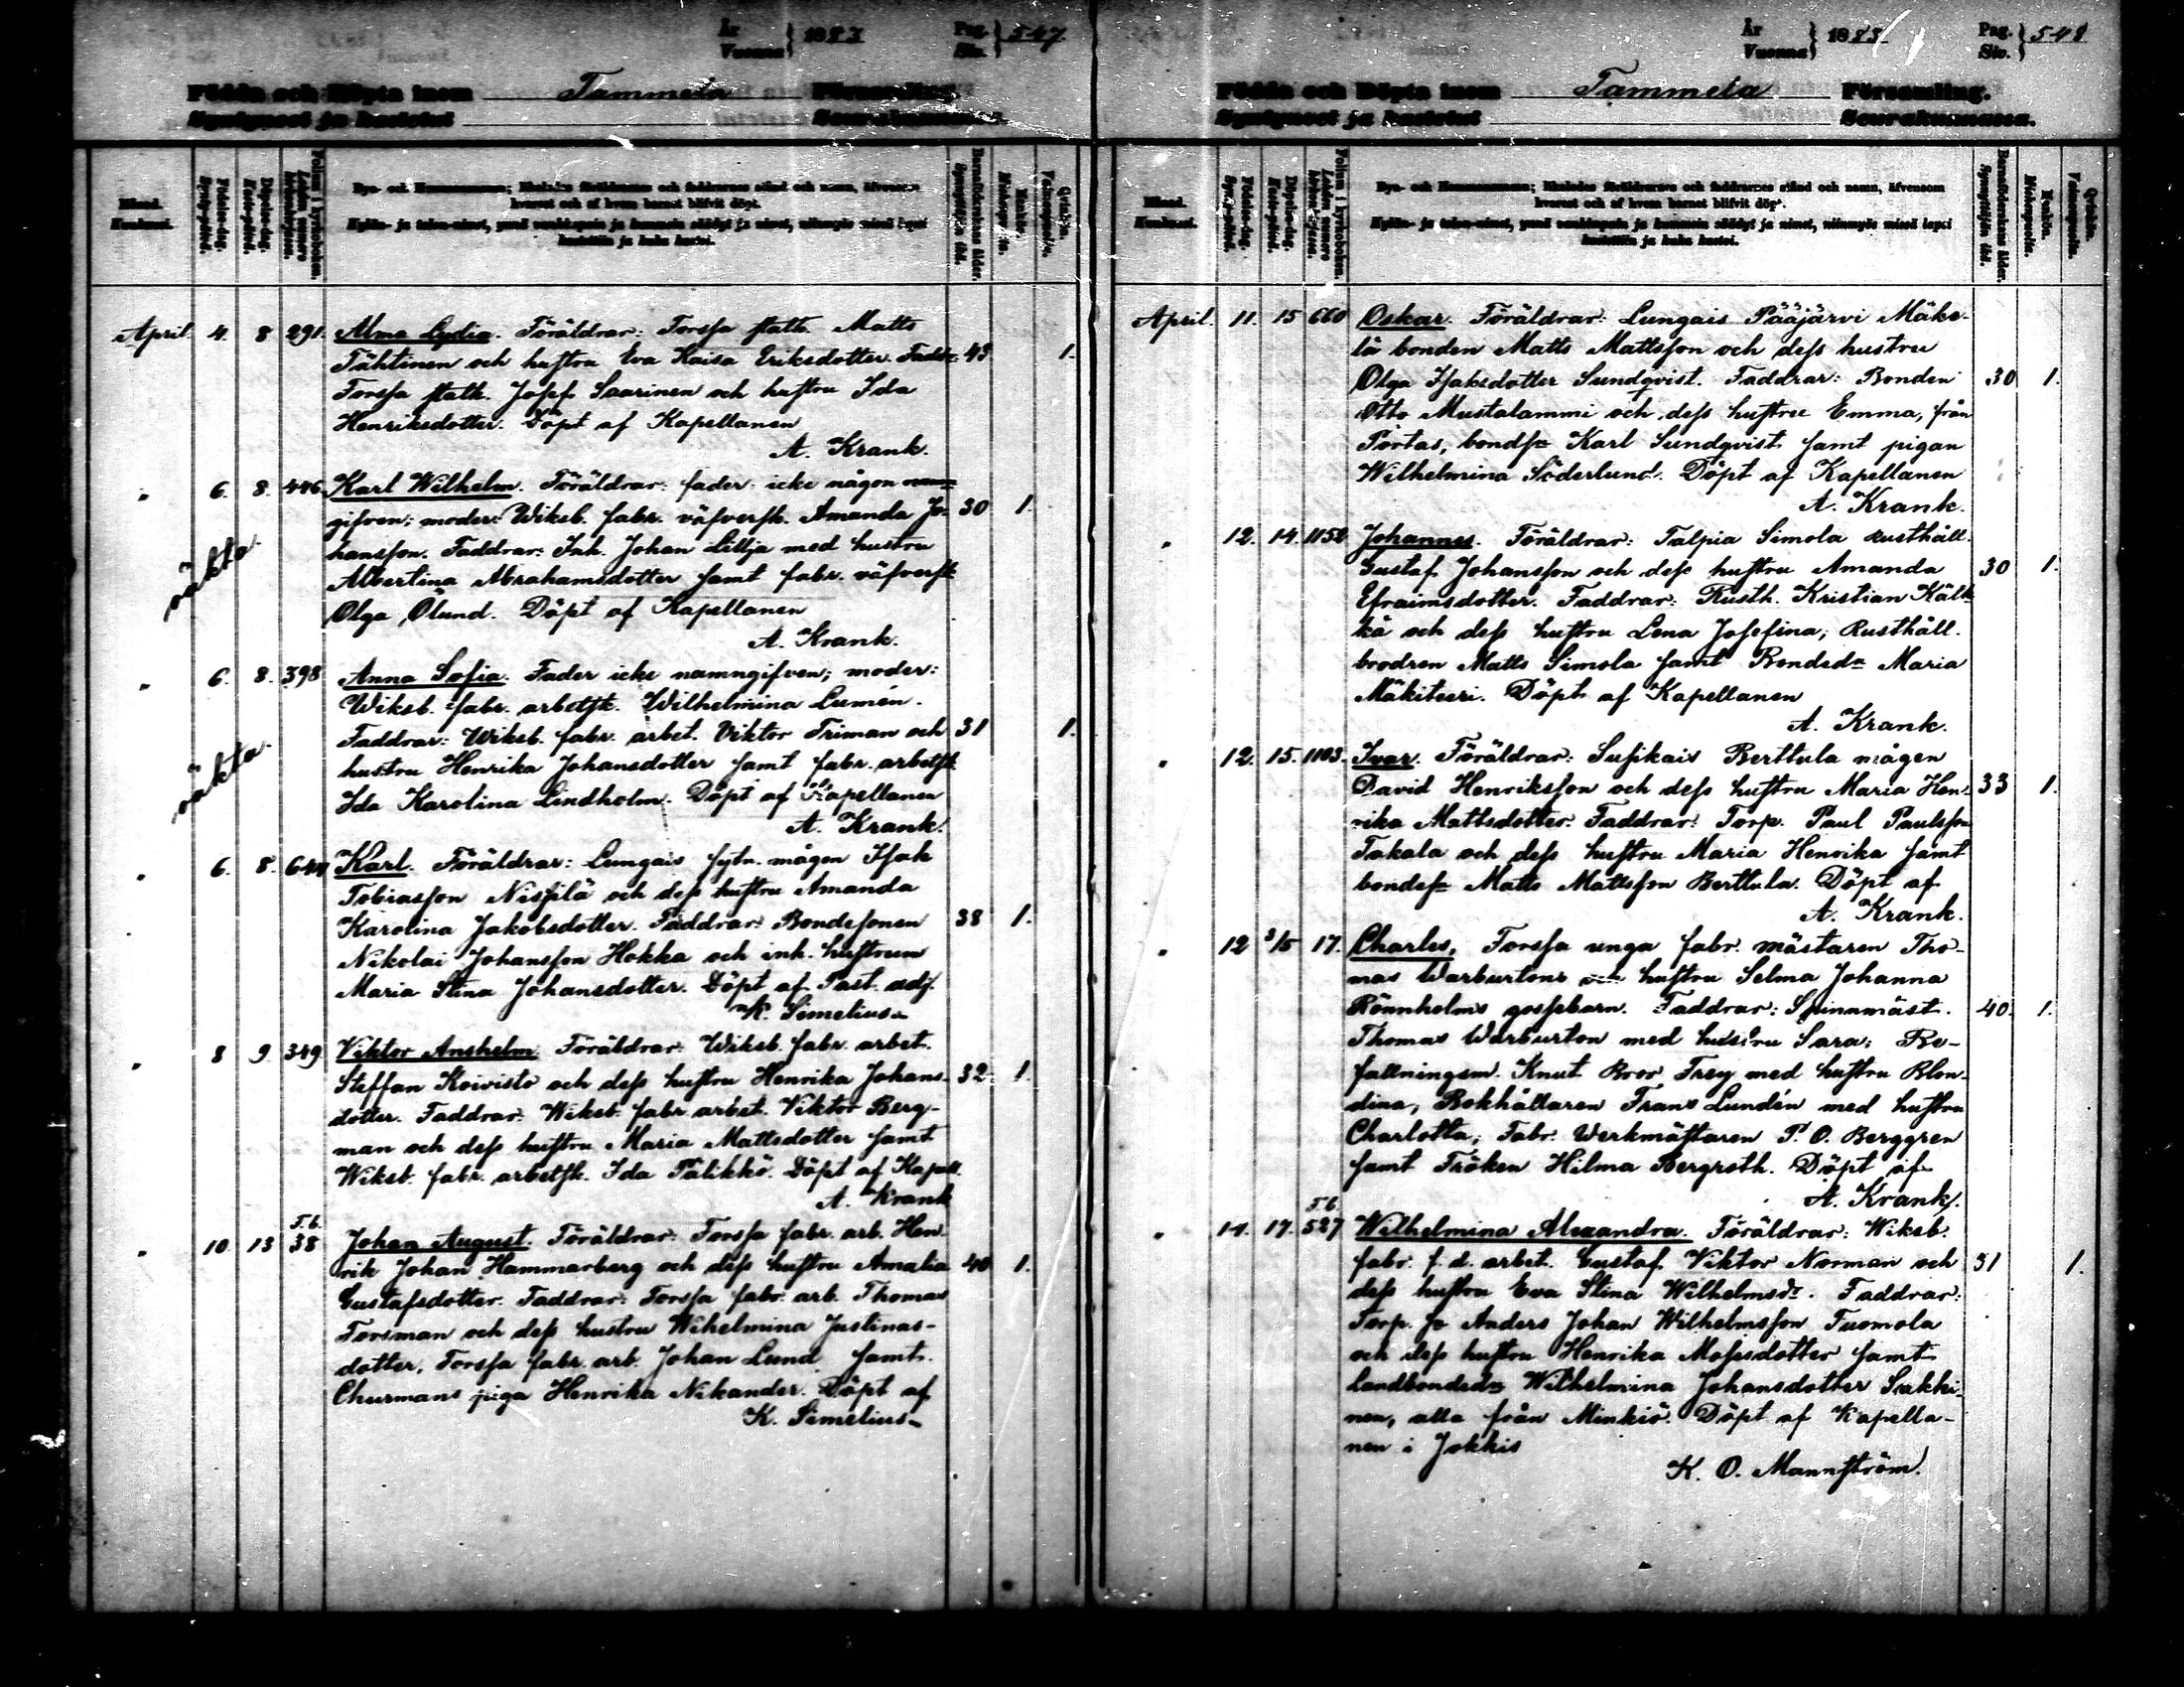 År
Vuonna } 1883 Pag.
Siv. } 547
Födda och Döpta inom Tammela Församling.
Syntyneet ja kastetut Seurakunnassa.
Månad.
Kuukausi.
Födelse-dag.
Syntymä-päivä.
Döpelse-dag.
Kaste-päivä.
By- och Hemmansnamn; likaledes föräldrarnes och faddrarnes stånd och namn, äfvensom
hvarest och af hvem barnet blifvit döpt.
April 4. 8 291. Alma Lydia. Föräldrar: Forssa statk. Matts
Tähtinen och hustru Eva Kaisa Eriksdotter. Faddr: 43 1.
Forssa statk. Josef Saarinen och hustru Ida
Henriksdotter. Döpt af Kapellanen
A. Krank.
" 6. 8. 446 Karl Wilhelm. Föräldrar: fader: icke någon namn-
gifven; moder: Wiksb. fabr. väfversk. Amanda Jo- 30 1.
hansson. Faddrar: Inh. Johan Lillja med hustru
oäkta
Albertina Abrahamsdotter samt fabr. väfversk.
Olga Ölund. Döpt af Kapellanen
A. Krank.
" 6. 8. 398 Anna Sofia. Fader icke namngifven; moder:
Wiksb. fabr. arbetsk. Wilhelmina Lumén.
Faddrar: Wiksb. fabr. arbet. Viktor Friman och 31 1.
oäkta
hustru Henrika Johansdotter samt fabr. arbetsk.
Ida Karolina Lindholm. Döpt af Kapellanen
A. Krank.
" 6. 8. Karl. Föräldrar: Lungais sytn. mågen Isak
Tobiasson Nispilä och dess hustru Amanda
Karolina Jakobsdotter. Faddrar: Bondesonen 38 1.
Nikolai Johansson Hokka och inh. hustrun
Maria Stina Johansdotter. Döpt af Past. adj.
K. Simelius
" 8 9. 349 Viktor Anshelm. Föräldrar: Wiksb. fabr. arbet.
Steffan Koivisto och dess hustru Henrika Johans- 32. 1.
dotter. Faddrar: Wiksb. fabr. arbet. Viktor Berg-
man och dess hustru Maria Mattsdotter samt
Wiksb. fabr. arbetsk. Ida Pälikkö. Döpt af Kapell.
A. Krank
T.b.
" 10. 13 38 Johan August. Föräldrar: Forssa fabr. arb. Hen-
rik Johan Hammarberg och dess hustru Amalia 40 1.
Gustafsdotter. Faddrar: Forssa fabr. arb. Thomas
Forsman och dess hustru Wihelmina Justinas-
dotter, Forssa fabr. arb. Johan Lund samt
Churmans piga Henrika Nikander. Döpt af
K. Simelius
År
Vuonna } 1883. Pag.
Siv. } 548
Födda och Döpta inom Tammela Församling.
Syntyneet ja kastetut Seurakunnassa.
Månad.
Kuukausi.
Födelse-dag.
Syntymä-päivä.
Döpelse-dag.
Kaste-päivä.
By- och Hemmansnamn; likaledes föräldrarnes och faddrarnes stånd och namn, äfvensom
hvarest och af hvem barnet blifvit döpt.
April. 11. 15 660 Oskar. Föräldrar: Lungais Pääjärvi Mäke-
lä bonden Matts Mattsson och dess hustru
Olga Isaksdotter Sundqvist. Faddrar: Bonden 30 1.
Otto Mustalammi och dess hustru Emma, från
Portas, bondes. Karl Sundqvist samt pigan
Wilhelmina Söderlund. Döpt af Kapellanen
A. Krank.
" 12. 14. 1152 Johannes. Föräldrar: Talpia Simola Rusthåll.
Gustaf Johansson och dess hustru Amanda 30 1.
Efraimsdotter. Faddrar: Rusth. Kristian Kälk-
kä och dess hustru Lena Josefina; Rusthåll.
brodren Matts Simola samt Bonded:r Maria
Mäkiteeri. Döpt af Kapellanen
A. Krank.
" 12. 15. 1103. Ivar. Föräldrar: Susikais Berttula mågen
David Henriksson och dess hustru Maria Hen- 33 1.
rika Mattsdotter. Faddrar: Torp. Paul Paulsson
Takala och dess hustru Maria Henrika samt
bondes. Matts Mattsson Berttula. Döpt af
A. Krank.
" 12 3/5 17. Charles, Forssa unga fabr. mästaren Tho-
mas Warburtons och hustru Selma Johanna
Rönnholms gossebarn. Faddrar: Spinnmäst. 40. 1.
Thomas Warburton med hustru Sara; Be-
fallningsm. Knut Bror Frey med hustru Blon-
dina, Bokhållaren Frans Lundén med hustru
Charlotta, Fabr. Werkmästaren P. O. Berggren
samt Fröken Hilma Bergroth. Döpt af
A. Krank.
T.b.
" 14. 17. 527 Wilhelmina Alexandra. Föräldrar: Wiksb.
fabr. f. d. arbet. Gustaf Viktor Norman och 31 1.
dess hustru Eva Stina Wilhelmsdr. Faddrar:
Torp. Jo Anders Johan Wilhelmsson Tuomola
och dess hustru Henrika Mosisdotter samt
landbonded:r Wilhelmina Johansdotter Sukki-
nen, alla från Minkiö. Döpt af Kapella-
nen i Jokkis
K. O. Mannström.